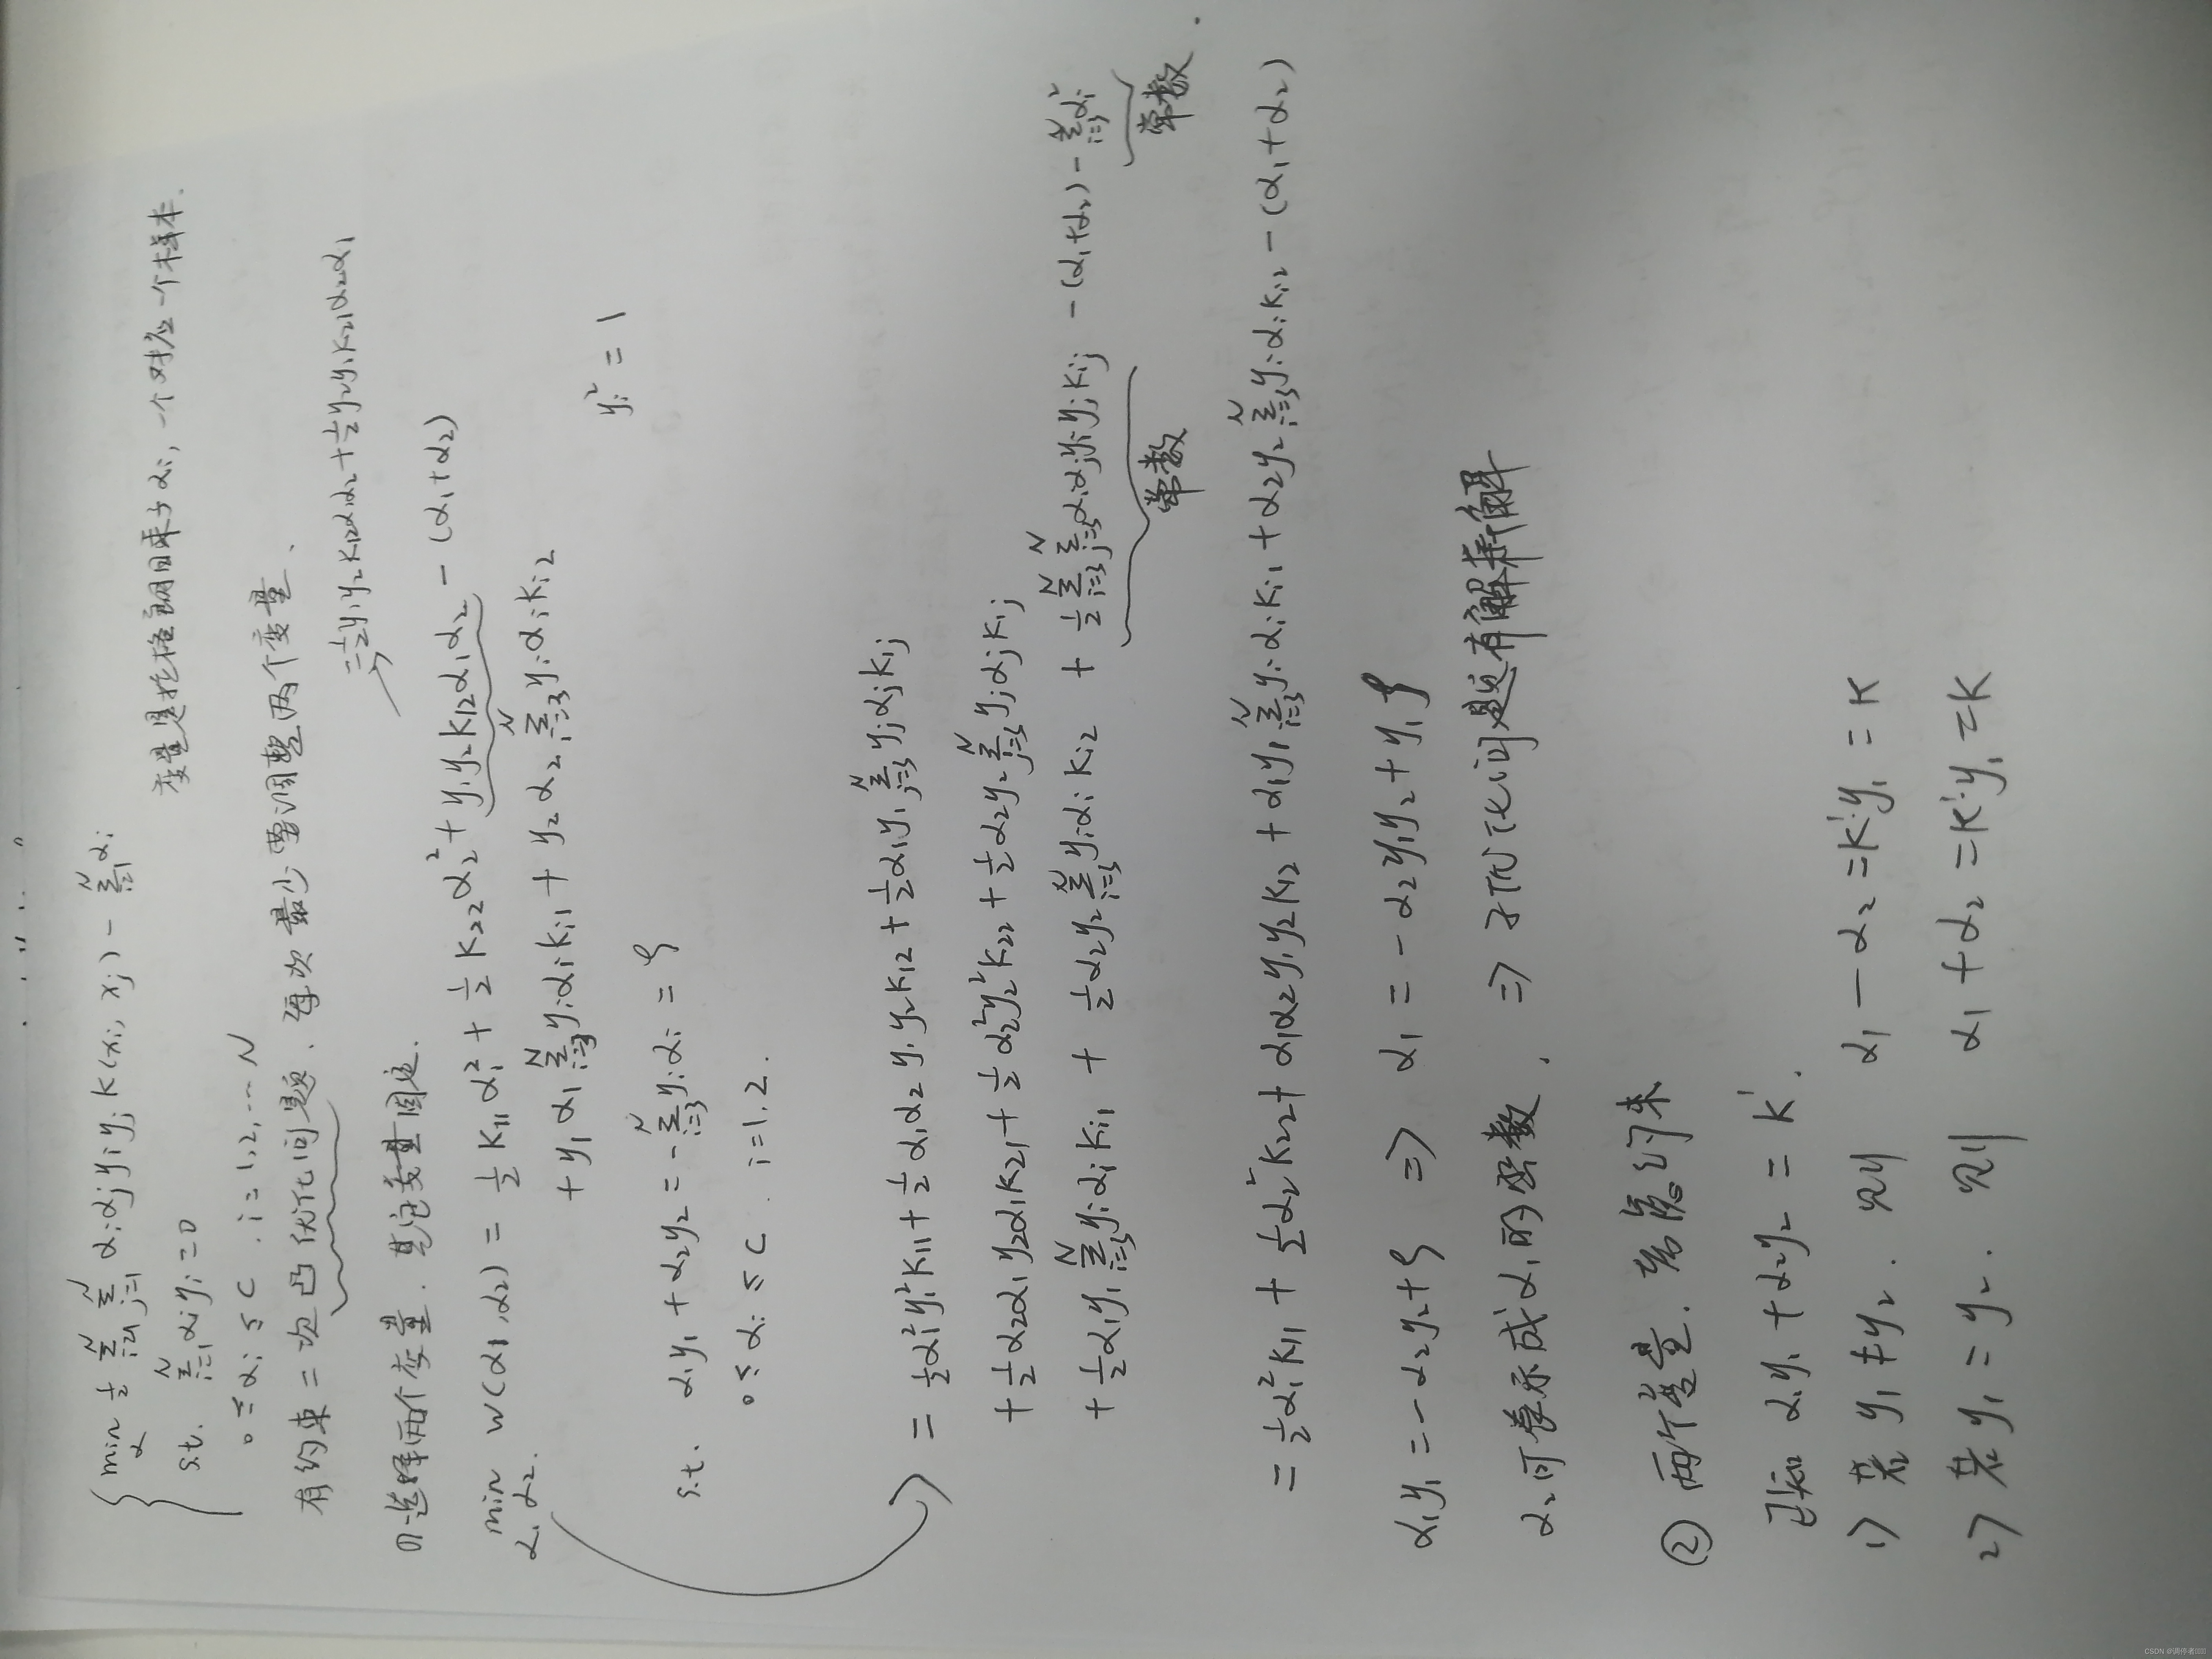 min ½ Σ_{i=1}^N Σ_{j=1}^N αiαjyiyjK(xi,xj) - Σ_{i=1}^N αi
α
s.t. Σ_{i=1}^N αiyi=0
变量是拉格朗日乘子αi, 一个对应一个样本.
0≤αi≤C . i=1,2,…N
有约束二次凸优化问题. 每次最少要调整两个变量.
= ½y1y2K12α1α2+½y2y1K21α2α1
①选择两个变量. 其它变量固定.
min W(α1,α2) = ½K11α1²+½K22α2²+y1y2K12α1α2-(α1+α2)
α1,α2.
+y1α1Σ_{i=3}^N yiαiKi1+y2α2Σ_{i=3}^N yiαiKi2
yi²=1
s.t. α1y1+α2y2=-Σ_{i=3}^N yiαi=ς
0≤αi≤C . i=1,2.
=½α1²y1²K11+½α1α2y1y2K12+½α1y1Σ_{j=3}^N yjαjKij
+½α2α1y2α1K21+½α2²y2²K22+½α2y2Σ_{j=3}^N yjαjKij
+½α1y1Σ_{i=3}^N yiαiKi1+½α2y2Σ_{i=3}^N yiαiKi2+½Σ_{i=3}^N Σ_{j=3}^N αiαjyiyjKij-(α1+α2)-Σ_{i=3}^N αi
常数 常数.
=½α1²K11+½α2²K22+α1α2y1y2K12+α1y1Σ_{i=3}^N yiαiKi1+α2y2Σ_{i=3}^N yiαiKi2-(α1+α2)
α1y1=-α2y2+ς ⇒ α1=-α2y1y2+y1ς
α2可表示成α1的函数. ⇒ 子优化问题有解析解
② 两个变量.
已知 α1y1+α2y2=K'.
1) 若y1≠y2. 则 α1-α2=K'·y1=K
2) 若y1=y2. 则 α1+α2=K'·y1=K
CSDN @调停者